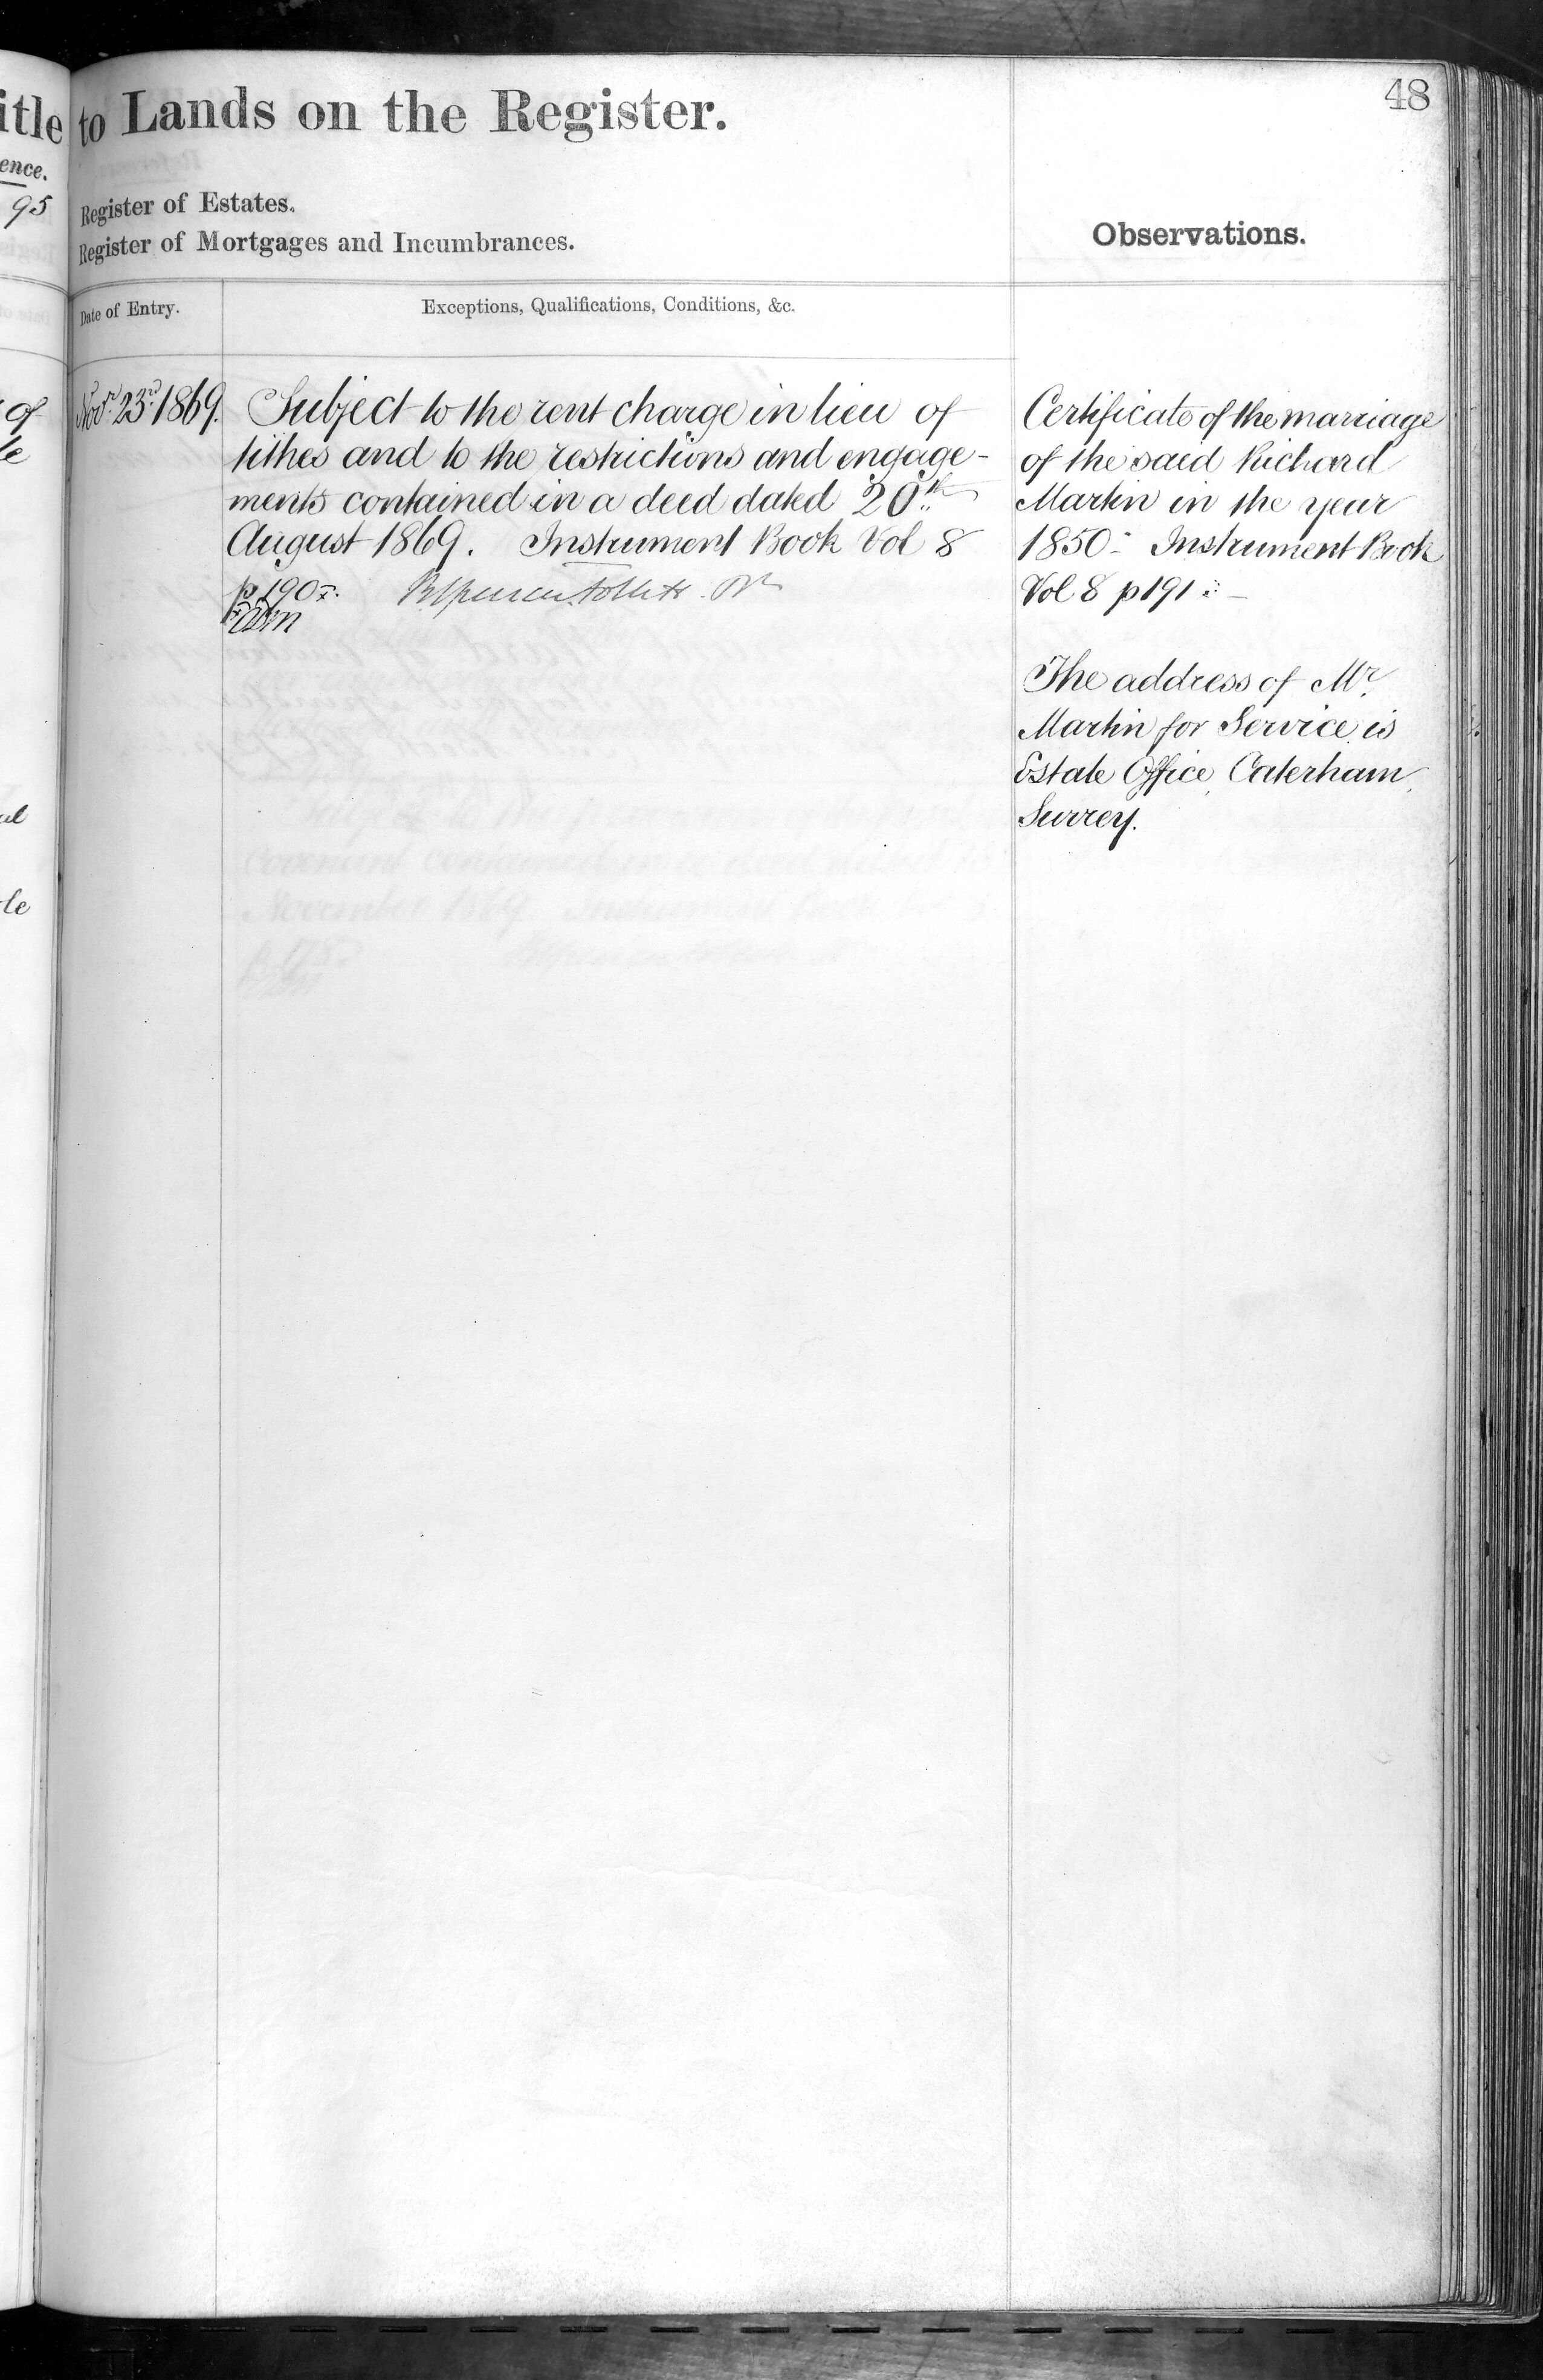 itle to Lands on the Register.
48
ence.
95
Register of Estates.
Register of Mortgages and Incumbrances.
Observations.
Date of Entry.
Exceptions, Qualifications, Conditions, &c.
of
le
Novr. 23rd 1869.
Subject to the rent charge in lieu of
tithes and to the restrictions and engage-
ments contained in a deed dated 20th
August 1869. Instrument Book Vol 8
p 190
Certificate of the marriage
of the said Richard
Martin in the year
1850 - Instrument Book
Vol 8 p 191 -
The address of Mr.
Martin for Service is
Estate Office, Caterham,
Surrey.